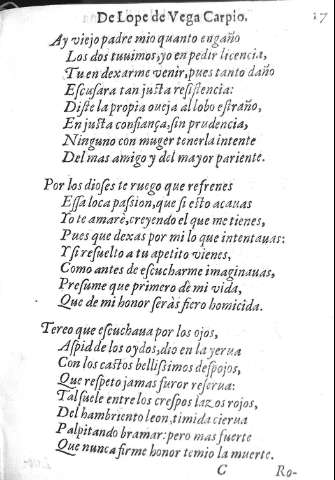 De Lope de Vega Carpio. 17
Ay viejo padre mio quanto engaño
Los dos tuuimos, yo en pedir licencia,
Tu en dexarme venir, pues tanto daño
Escusara tan justa resistencia:
Diste la propia oueja al lobo estraño,
En justa confiança, sin prudencia,
Ninguno con muger tenerla intente
Del mas amigo y del mayor pariente.
Por los dioses te ruego que refrenes
Essa loca passion, que si esto acauas
Yo te amarè, creyendo el que me tienes,
Pues que dexas por mi lo que intentauas:
Y si resuelto a tu apetito vienes,
Como antes de escucharme imaginauas,
Presume que primero de mi vida,
Que de mi honor seràs fiero homicida.
Tereo que escuchaua por los ojos,
Aspid de los oydos, dio en la yerua
Con los castos bellissimos despojos,
Que respeto jamas furor reserua:
Tal suele entre los crespos lazos rojos,
Del hambriento leon, timida cierua
Palpitando bramar: pero mas fuerte
Que nunca firme honor temio la muerte.
C Ro-